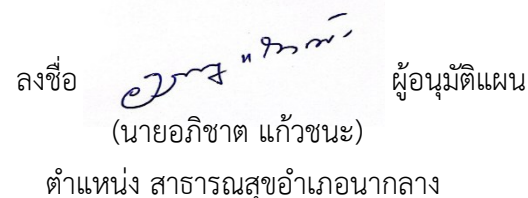 ลงชื่อ ผู้อนุมัติแผน
(นายอภิชาต แก้วชนะ)
ตำแหน่ง สาธารณสุขอำเภอนากลาง